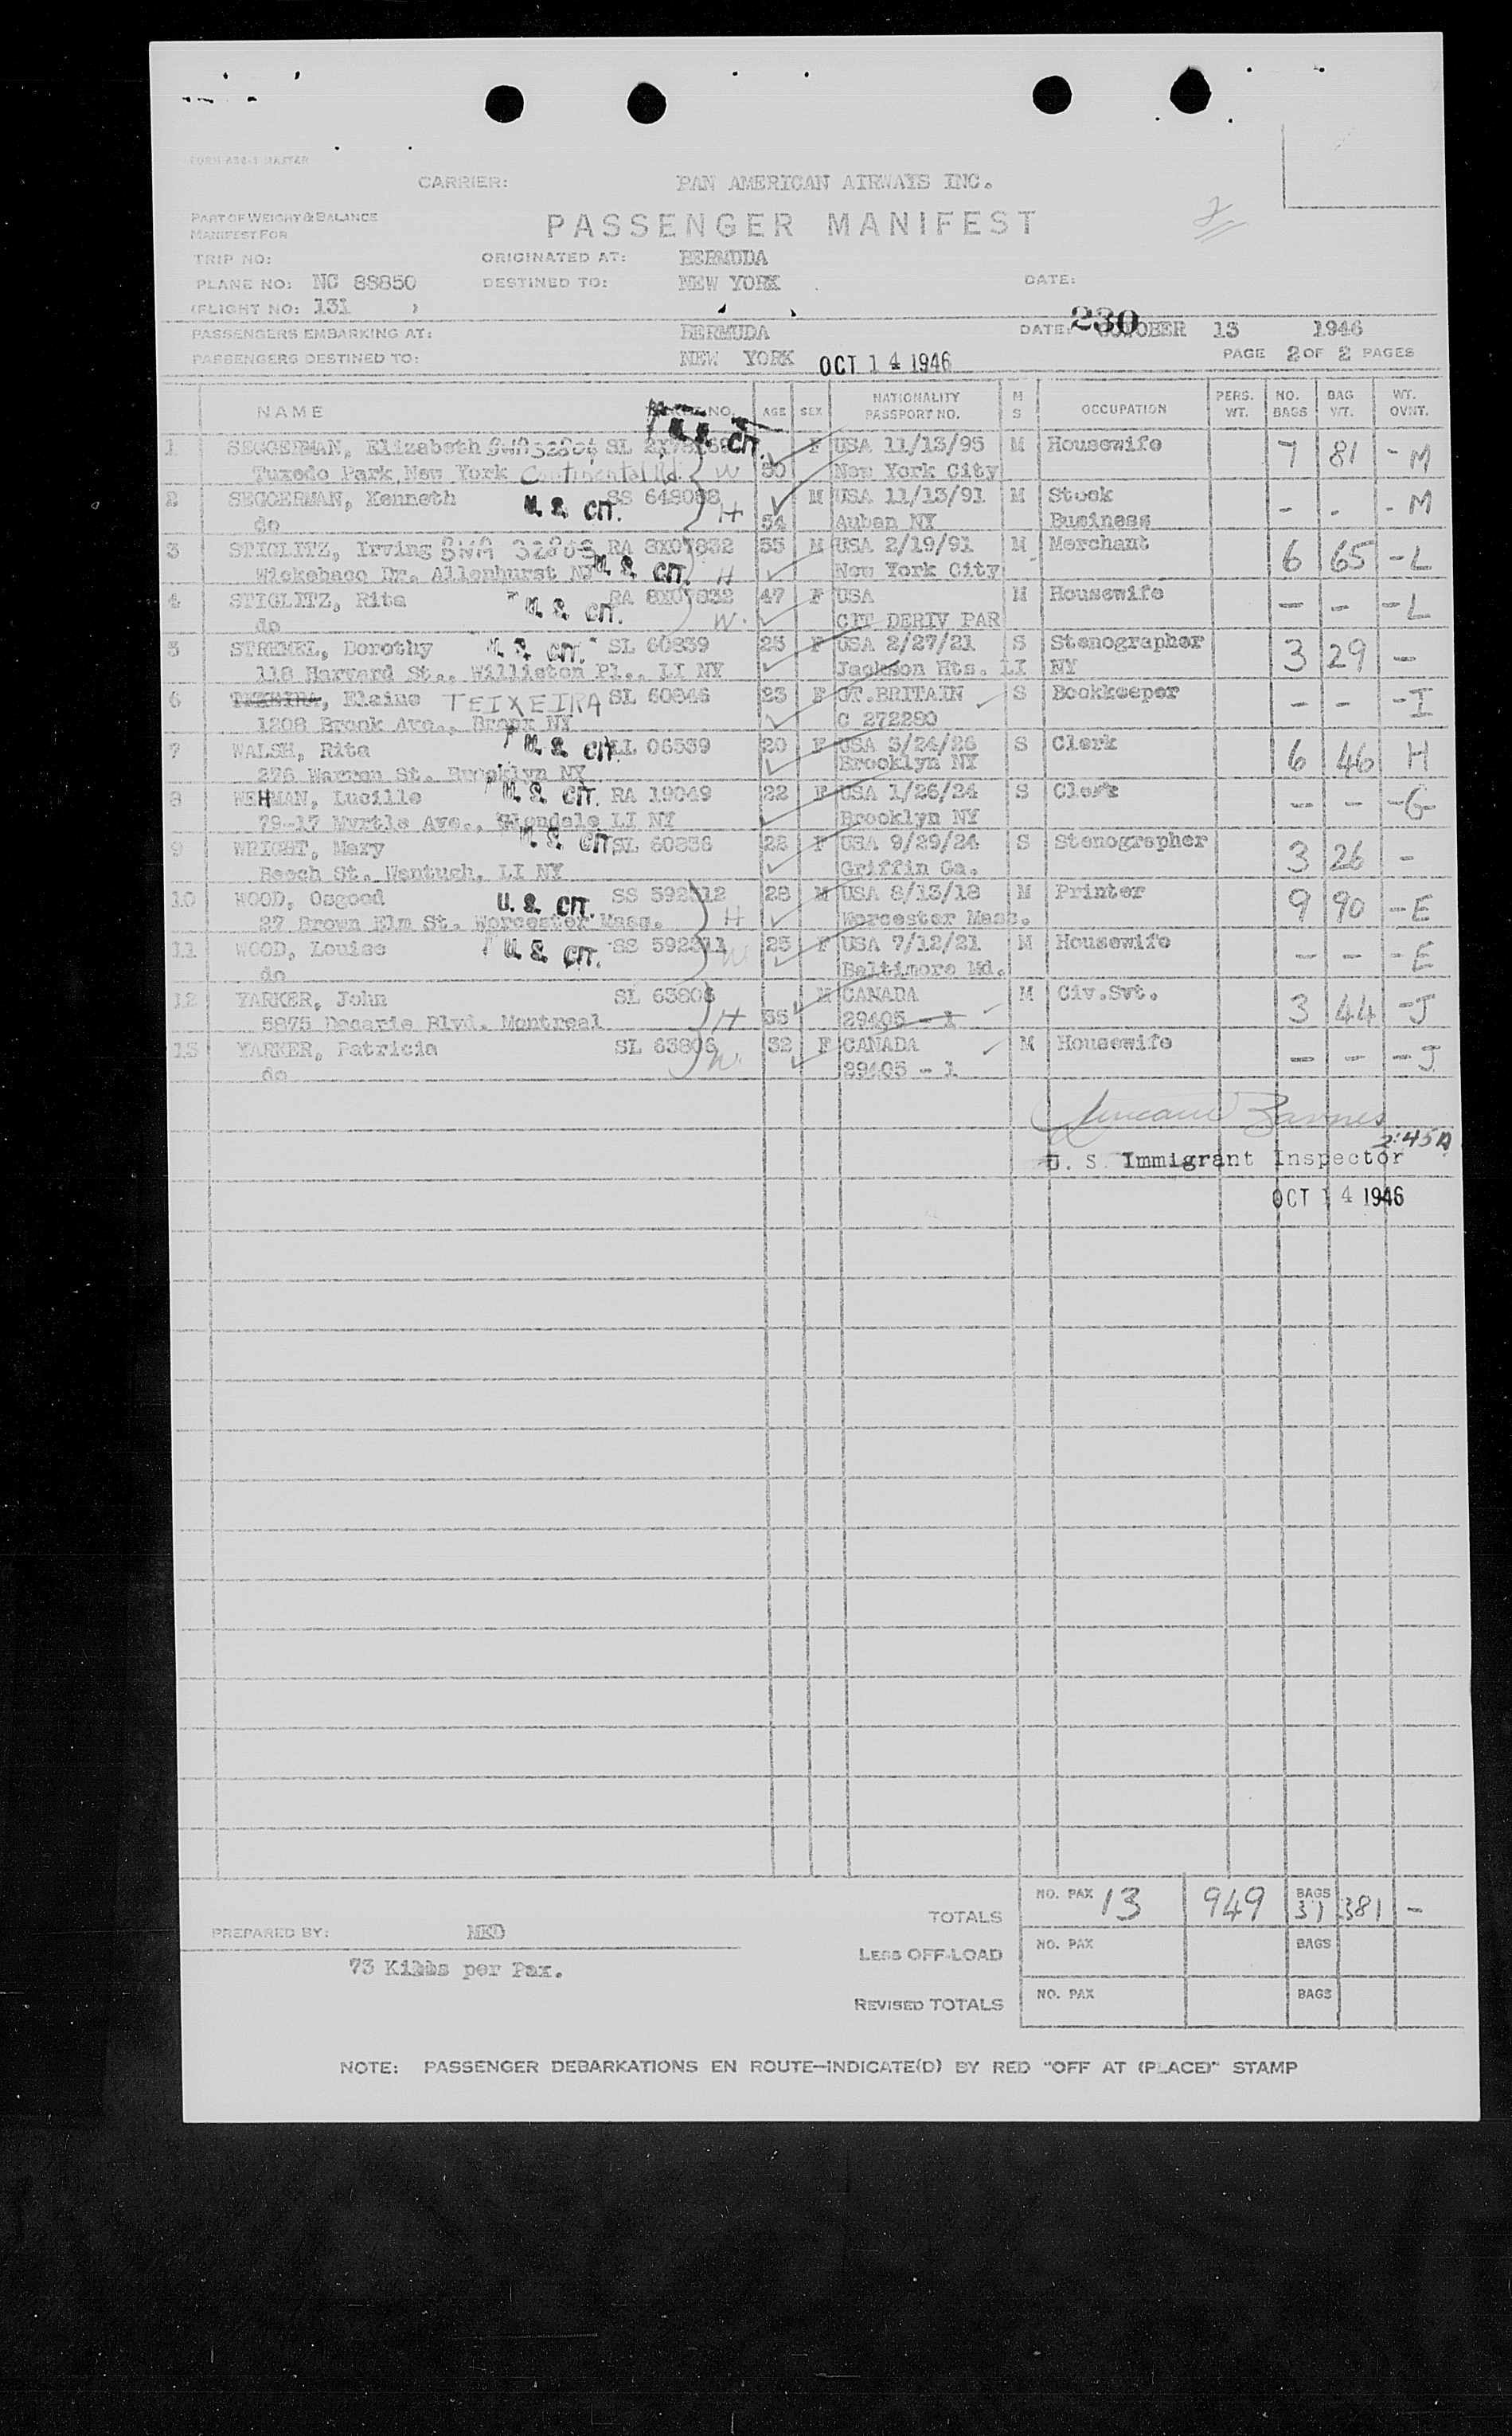 FORM MASTER
CARRIER: PAN AMERICAN AIRWAYS INC.
PART OF WEIGHT & BALANCE
MANIFEST FOR
PASSENGER MANIFEST 2
TRIP NO: ORIGINATED AT: BERMUDA
PLANE NO: NC 88850 DESTINED TO: NEW YORK DATE:
(FLIGHT NO: 131 )
PASSENGERS EMBARKING AT: BERMUDA DATE: 230 OCTOBER 13 1946
PASSENGERS DESTINED TO: NEW YORK OCT 14 1946 PAGE 2 OF 2 PAGES
NAME NO. AGE SEX NATIONALITY PASSPORT NO. M S OCCUPATION PERS. WT. NO. BAGS BAG WT. WT. OVNT.
1 SEGGERMAN, Elizabeth BWA 32804 SL U. S. CIT. F USA 11/13/95 M Housewife 7 81 - M
Tuxedo Park New York Continental Rd. W 50 New York City
2 SEGGERMAN, Kenneth U. S. CIT. SS 648088 H M USA 11/13/91 M Stock - - - M
do 54 Auban NY Business
3 STIGLITZ, Irving BWA 32803 RA 8X07832 55 M USA 2/19/91 M Merchant 6 65 - L
Wickabaco Dr. Allenhurst NJ U. S. CIT. H New York City
4 STIGLITZ, Rita U. S. CIT. RA 8X07832 47 F USA M Housewife - - - L
do W. CIT DERIV PAR
5 STREMEL, Dorothy U. S. CIT. SL 60839 25 F USA 2/27/21 S Stenographer 3 29 -
118 Harvard St., Williston Pl., LI NY Jackson Hts. LI NY
6 TEXEIRA, Elaine TEIXEIRA SL 60846 23 F GT.BRITAIN S Bookkeeper - - - I
1208 Brook Ave., Bronx NY C 272280
7 WALSH, Rita U. S. CIT. LL 06539 20 F USA 3/24/26 S Clerk 6 46 H
276 Warren St. Brooklyn NY Brooklyn NY
8 WEHMAN, Lucille U. S. CIT. RA 19049 22 F USA 1/26/24 S Clerk - - - G
79-17 Myrtle Ave., Glendale LI NY Brooklyn NY
9 WRIGHT, Mary U. S. CIT. SL 60836 22 F USA 9/29/24 S Stenographer 3 26 -
Beech St. Wantugh, LI NY Griffin Ga.
10 WOOD, Osgood U. S. CIT. SS 592312 28 M USA 8/13/18 M Printer 9 90 - E
27 Brown Elm St. Worcester Mass. H Worcester Mass.
11 WOOD, Louise U. S. CIT. SS 592311 25 F USA 7/12/21 M Housewife - - - E
do W Baltimore Md.
12 YARKER, John SL 63806 M CANADA M Civ.Svt. 3 44 - J
5875 Decarie Blvd. Montreal H 35 29405 - 1
13 YARKER, Patricia SL 63806 32 F CANADA M Housewife - - - J
do W. 29405 - 1
Barnes
2:45A
U. S. Immigrant Inspector
OCT 14 1946
TOTALS NO. PAX 13 949 BAGS 37 381 -
PREPARED BY: NKD
LESS OFF-LOAD NO. PAX BAGS
73 Kilos per Pax.
REVISED TOTALS NO. PAX BAGS
NOTE: PASSENGER DEBARKATIONS EN ROUTE—INDICATE(D) BY RED "OFF AT (PLACE)" STAMP